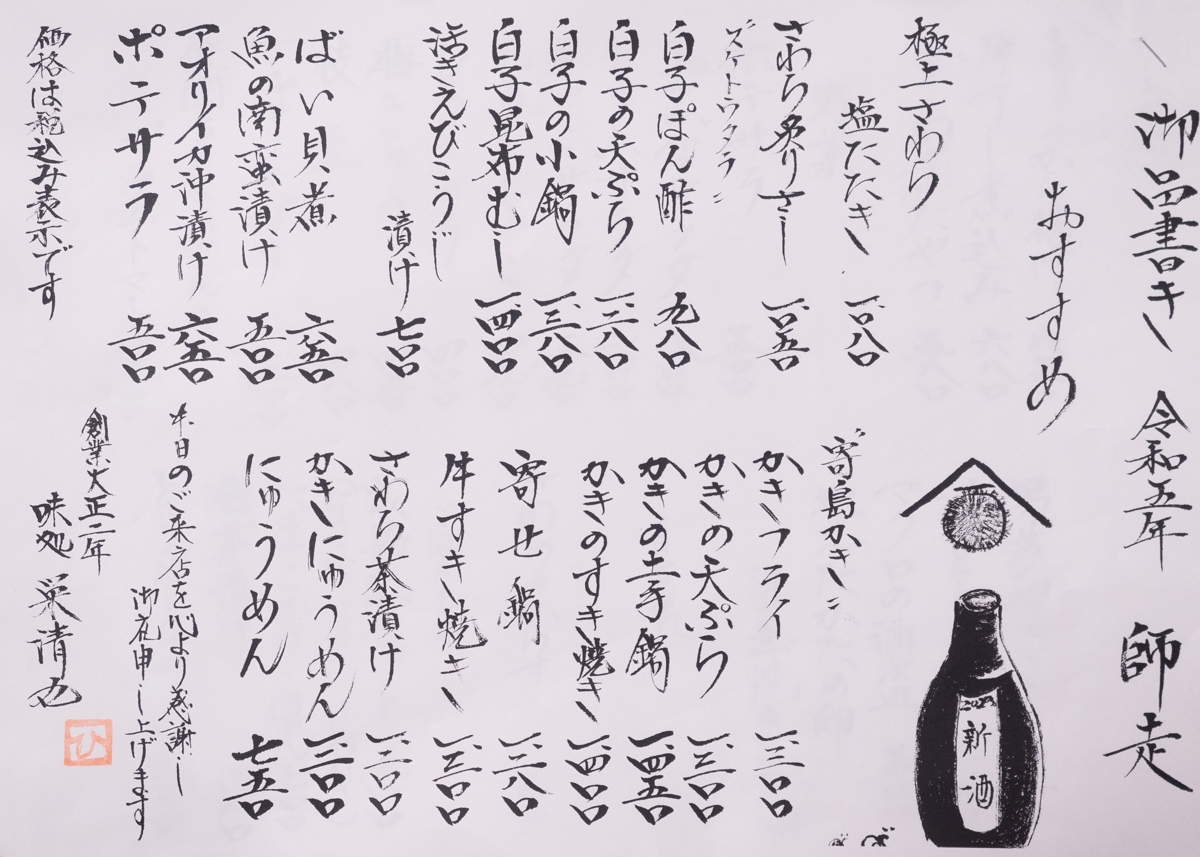 御品書き 令和五年 師走
おすすめ
極上さわら
塩たたき 一、〇八〇
さわら炙りさし 一、〇五〇
〝スケトウダラ〟
白子ぽん酢 九八〇
白子の天ぷら 一、二八〇
白子の小鍋 一、三八〇
白子昆布むし 一、四〇〇
活きえびこうじ
漬け 七〇〇
ばい貝煮 六五〇
魚の南蛮漬け 五五〇
アオリイカ沖漬け 六八五〇
ポテサラ 五五〇
価格は税込み表示です
2023
新酒
〝寄島かき〟
かきフライ 一、三〇〇
かきの天ぷら 一、三〇〇
かきの土手鍋 一、四五〇
かきのすき焼き 一、四〇〇
寄せ鍋 一、二八〇
牛すき焼き 一、三〇〇
さわら茶漬け 一、二〇〇
かきにゅうめん 一、三〇〇
にゅうめん 七五〇
本日のご来店を心より感謝し
御礼申し上げます
創業大正二年
味処 栄清丸
ひ